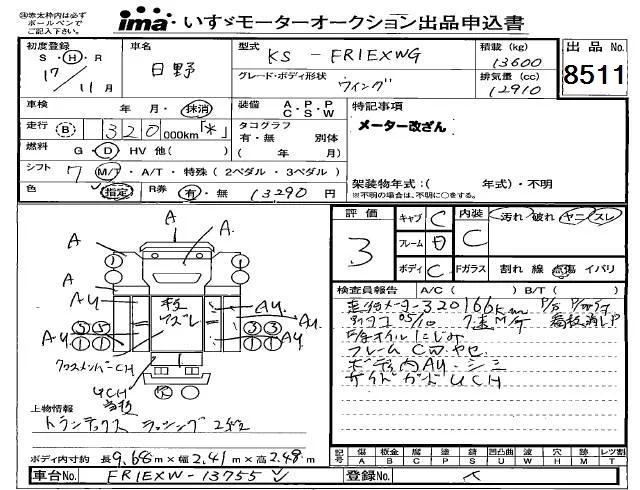 ㊟赤太枠内は必ず
ボールペンで
ご記入下さい。
ima・いすゞモーターオークション出品申込書
初度登録
S・H・R
17/11月
車名
日野
型式
KS - FR1EXWG
グレード・ボディ形状
ウイング
積載(kg)
13600
排気量(cc)
12910
出品No.
8511
車検 年 月・抹消
走行 B 320,000km「*」
燃料 G・D HV 他( )
シフト 7 M/T・A/T・特殊(2ペダル・3ペダル)
色 指定 R券 有・無 13290円
装備 A.P.P
C.S.W
タコグラフ
有・無 別体
( 年 月)
特記事項
メーター改ざん
架装物年式:( 年式)・不明
※不明の場合は、不明に○をする。
評価
3
キャブ C
フレーム
ボディ C
内装 C
汚れ 破れ ヤニ スレ
Fガラス 割れ 線 点傷 イバリ
A
A
A.
A
A
AY
AY
AY
AY
クロスメンバーCH
UCH
上物情報
ラッシング 2段
ボディ内寸約 長9.68m×幅2.41m×高2.48m
検査員報告 A/C( ) B/T( )
320166km
05/10 7速M/T
オイルにじみ
フレーム CW.ヤセ
ボディ内AY・シミ
サイドガードUCH
記号
傷 A
板金 B
腐 C
塗 P
錆 S
凹凸曲 U
波 W
穴 H
跡 M
レツ割 T
車台No. FR1EXW-13755
登録No.